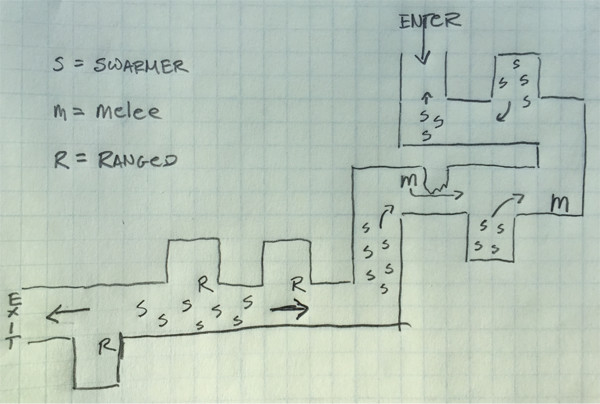 ENTER
S = SWARMER
m = melee
R = RANGED
S
S S
S
S
S S
S
m
m
S S
S S
S
S
S
S
S
S
S
R
R
S S S S S S S
R
EXIT